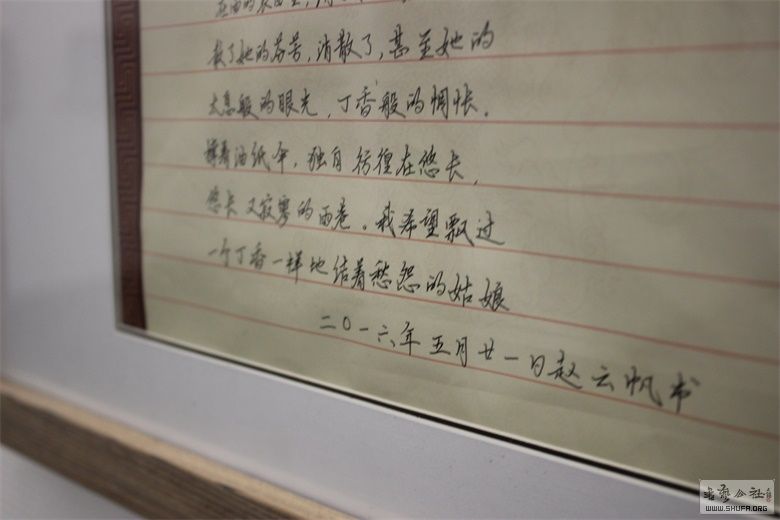 散了她的芬芳,消散了,甚至她的
太息般的眼光,丁香般的惆怅。
撑着油纸伞,独自彷徨在悠长,
悠长又寂寥的雨巷。我希望飘过
一个丁香一样地结着愁怨的姑娘
二〇一六年五月廿一日赵云帆书
WWW.SHUFA.ORG